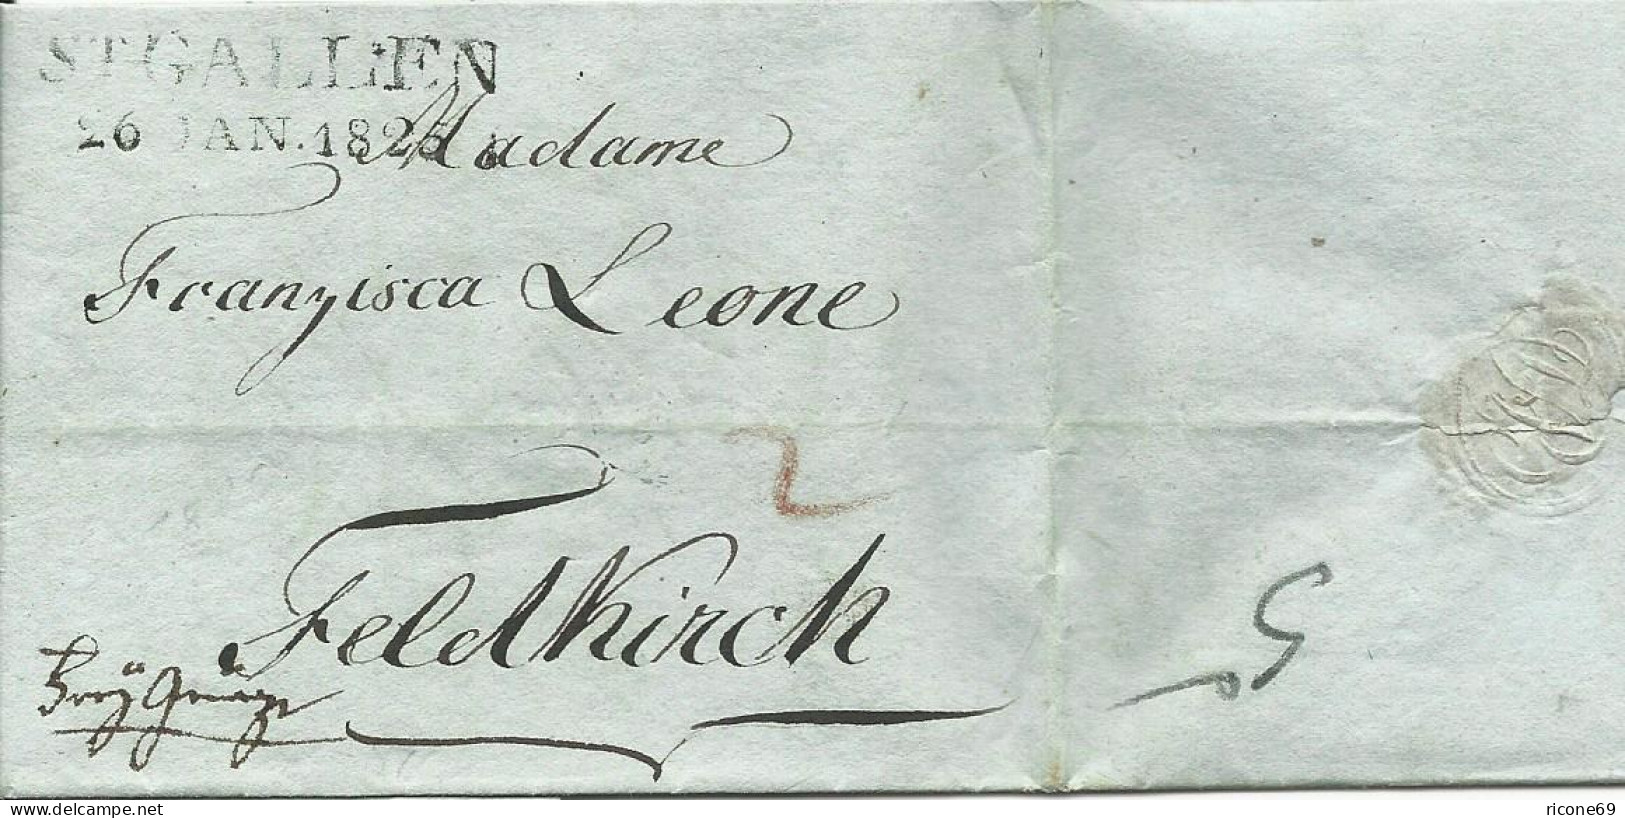 ST GALLEN
26 JAN. 1826
Madame
Franzisca Leone
2
Feldkirch
Freÿ Gränze
5
delcampe.net
ricone69